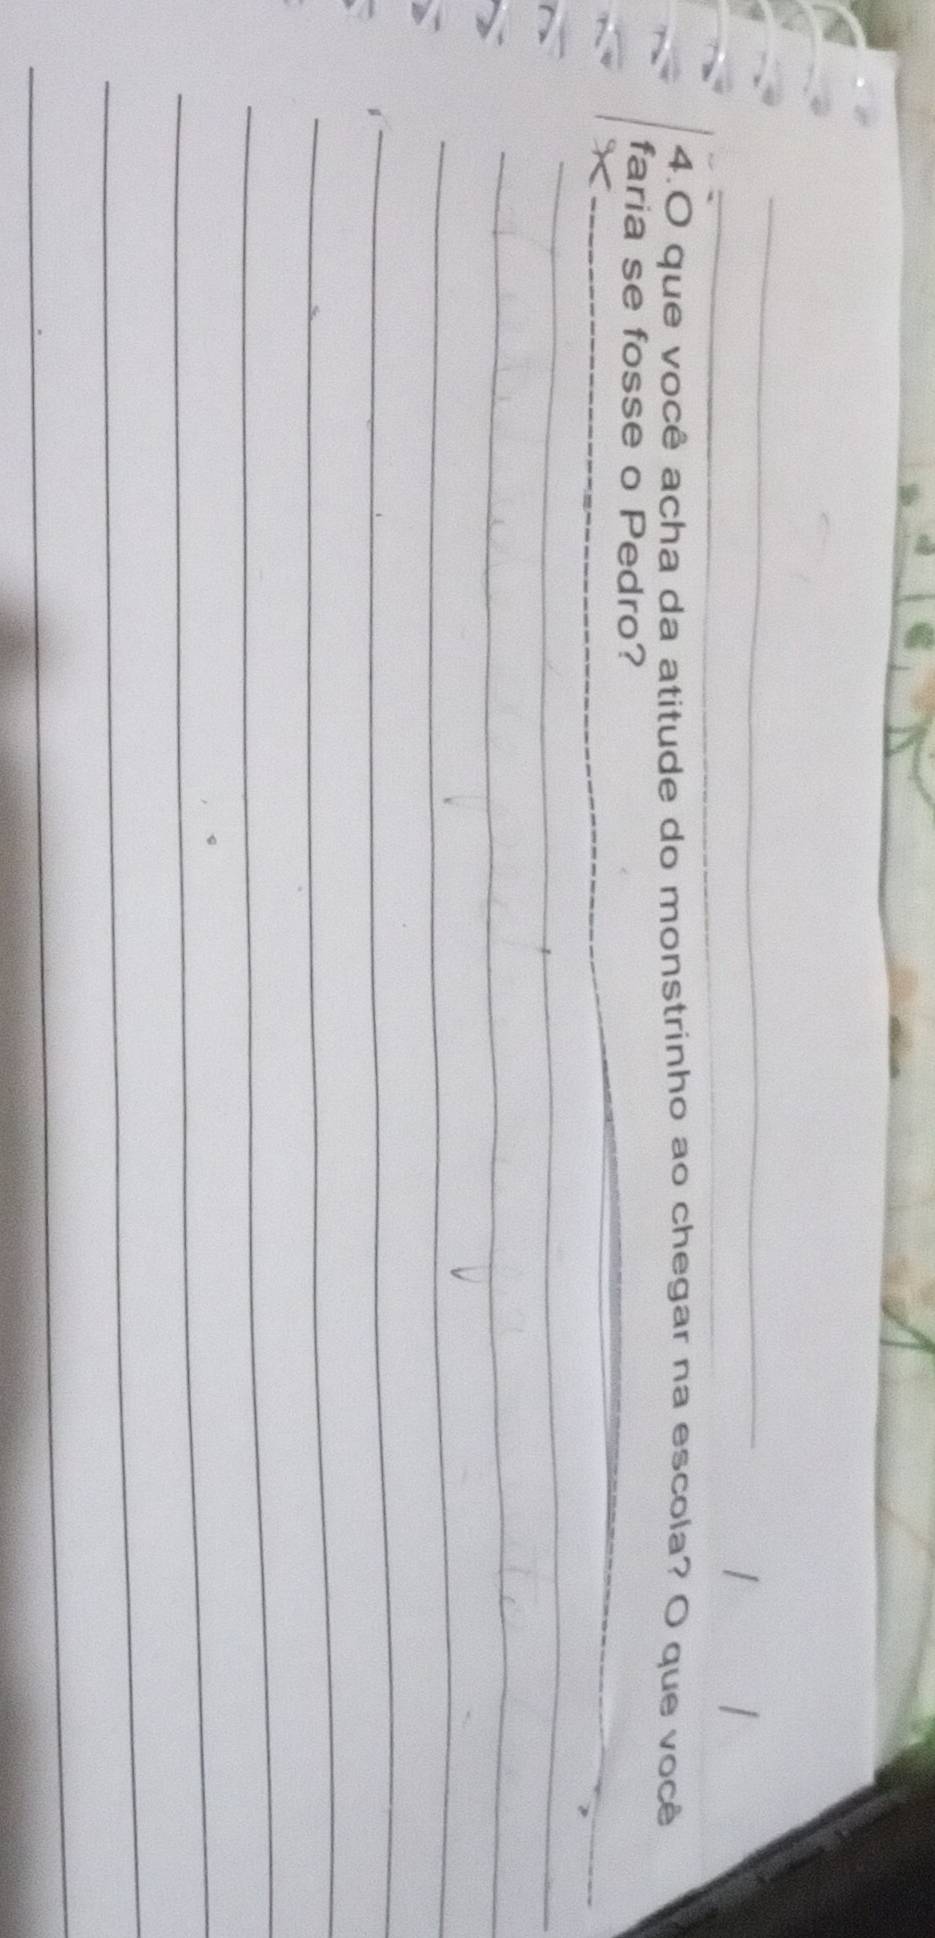 4.O que você acha da atitude do monstrinho ao chegar na escola? O que você
faria se fosse o Pedro?